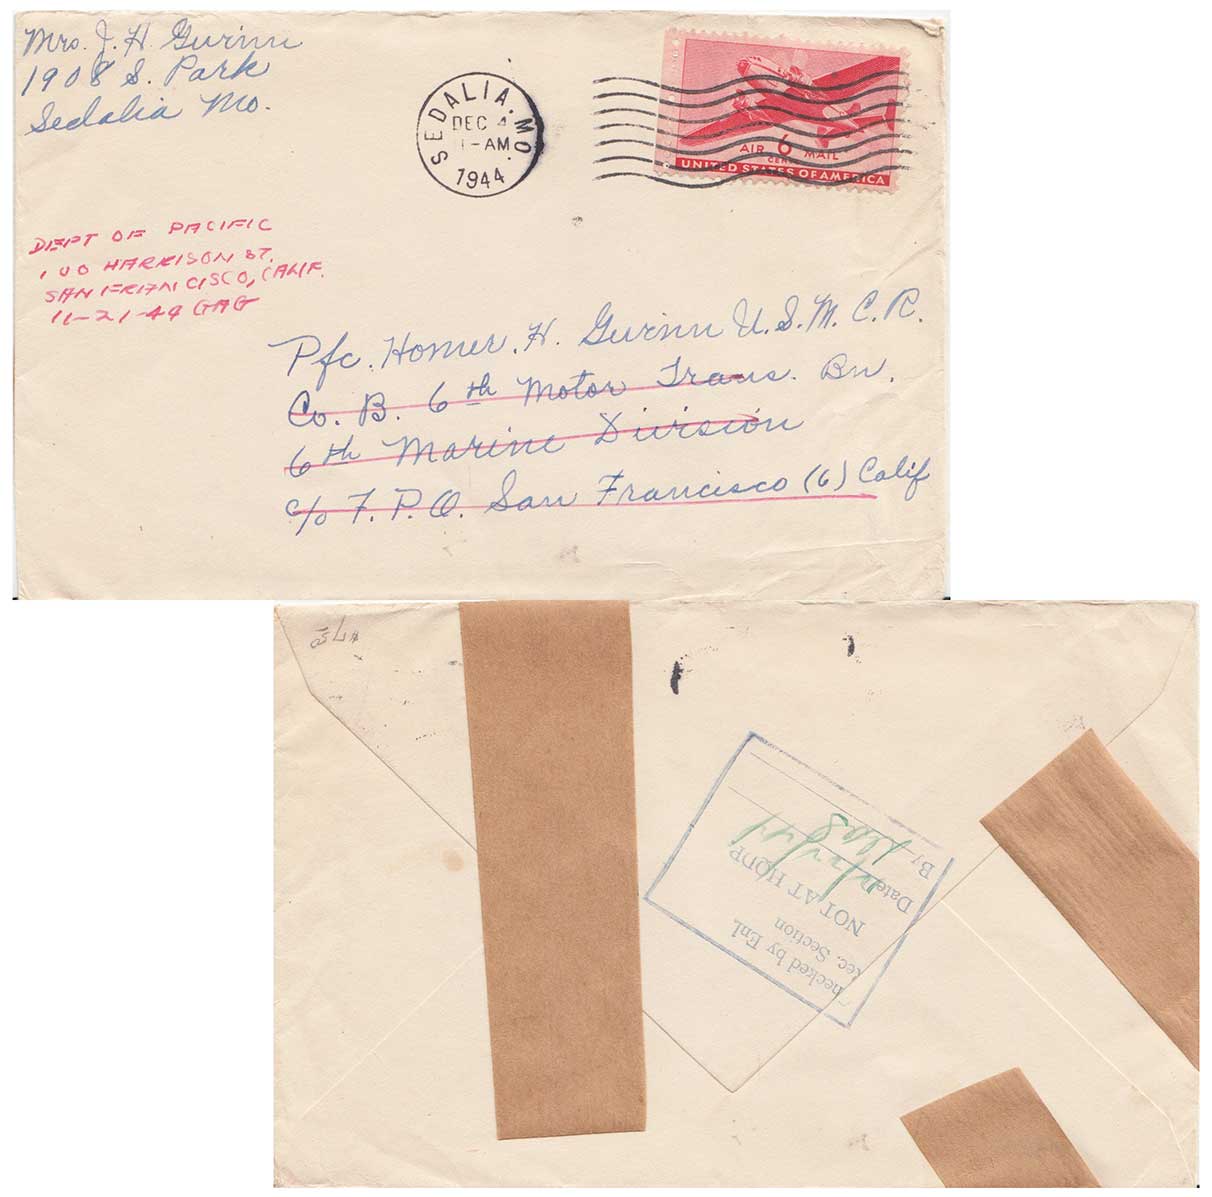 Mrs. J. H. Gwinn
1908 S. Park
Sedalia Mo.
SEDALIA, MO.
DEC 4
1-AM
1944
AIR 6 MAIL
CENTS
UNITED STATES OF AMERICA
DEPT OF PACIFIC
100 HARRISON ST.
SAN FRANCISCO, CALIF.
11-21-44 GAG
Pfc. Homer. H. Gwinn U.S.M.C.R.
Co. B. 6th Motor Trans. Bn.
6th Marine Division
c/o F.P.O. San Francisco (6) Calif
hecked by Enl.
ec. Section
NOT AT HQDP
Date
By